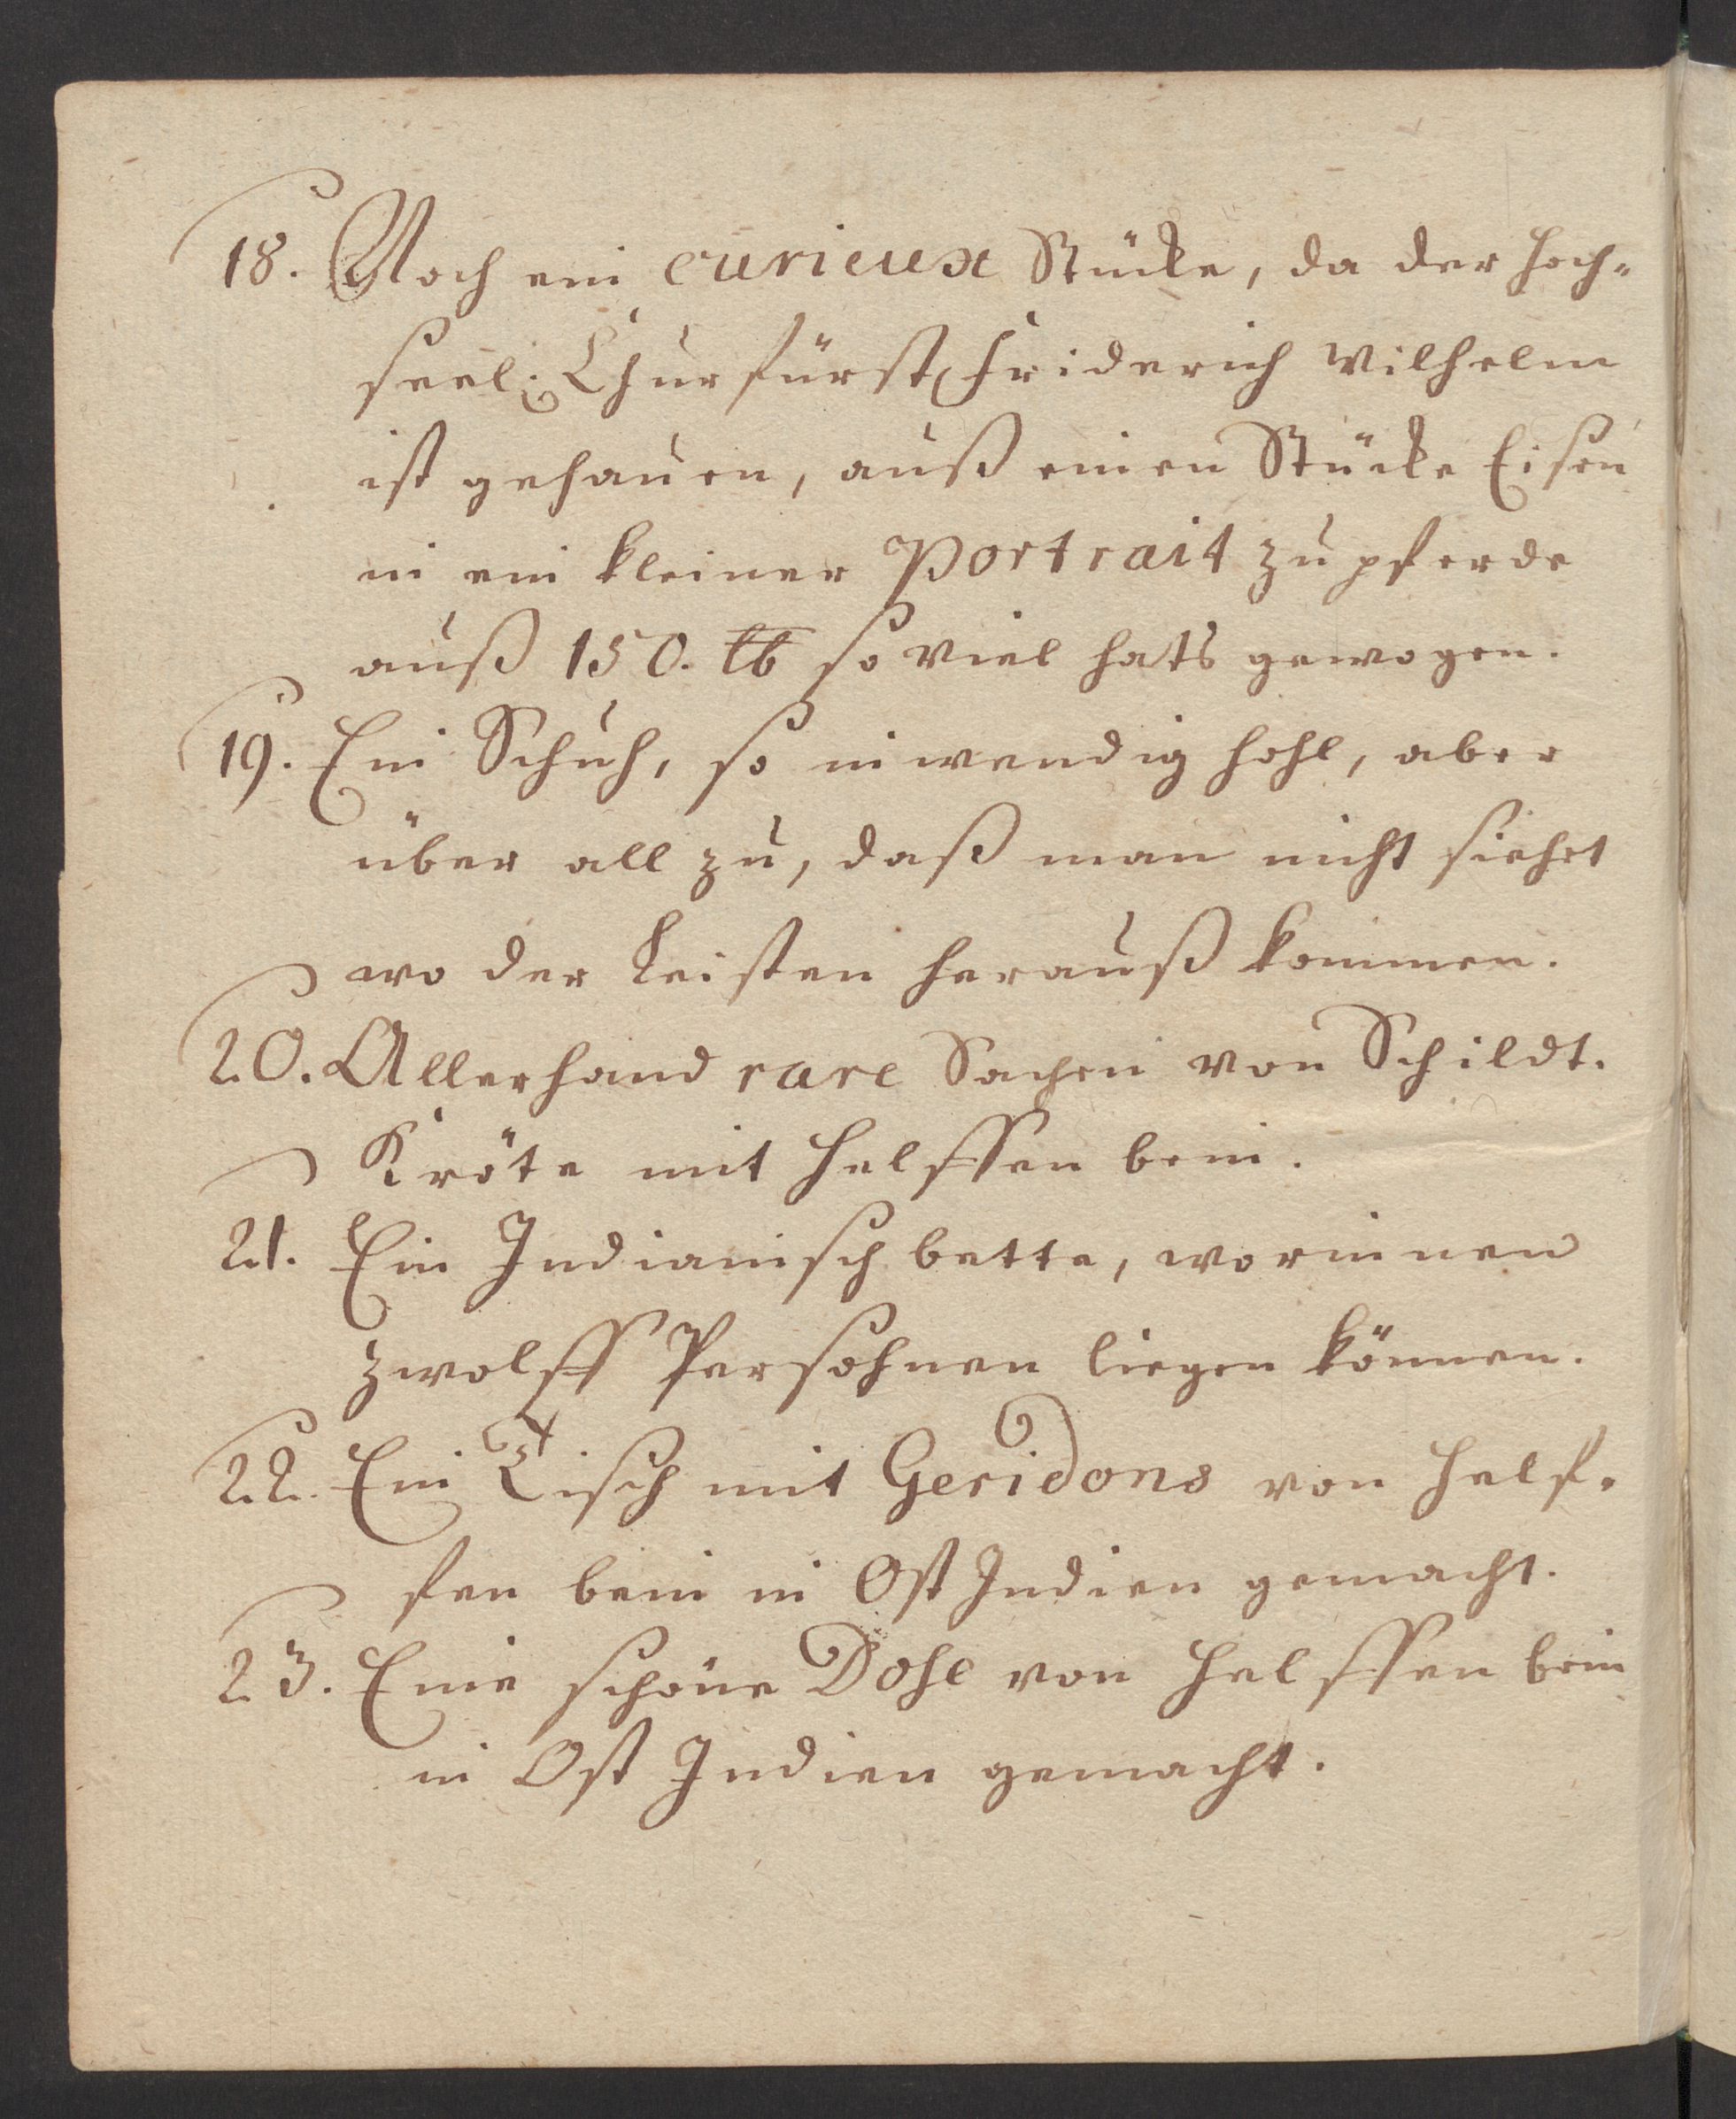 18. Noch ein curieux Stücke, da der Hoch-
seel: Churfürst Friderich Wilhelm
ist gehauen, auß einen Stücke Eisen
in ein kleiner Portrait zu pferde
auß 150. lb so viel hats gewogen.
19. Ein Schuh, so inwendig hohl, aber
über all zu, daß man nicht siehet
wo der Leisten herauß kommen.
20. Allerhand rare Sachen von Schildt.
Kröte mit Helffen bein.
21. Ein Indianisch bette, worinnen
zwolff Persohnen liegen können.
22. Ein Tisch mit Geridons von Helf-
fen bein in Ost Indien gemacht.
23. Eine schöne Dose von Helffen bein
in Ost Indien gemacht.